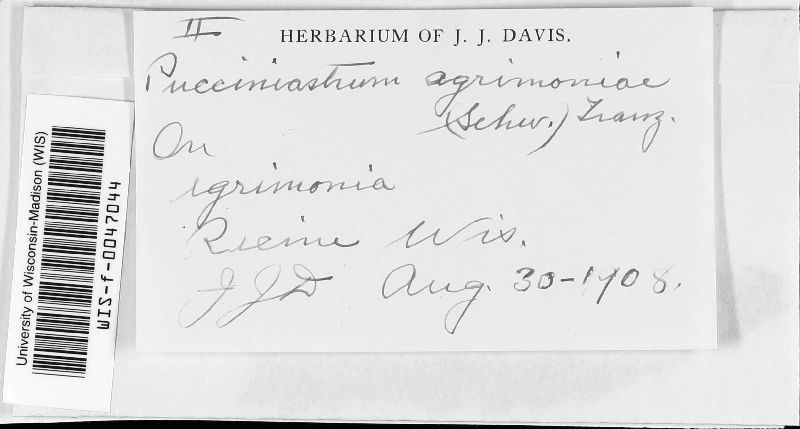 II
HERBARIUM OF J. J. DAVIS.
Pucciniastrum agrimoniae
(Schw.) Tranz.
On
agrimonia
Racine Wis.
JJD Aug. 30-1908.
University of Wisconsin-Madison (WIS)
WIS-f-0047044